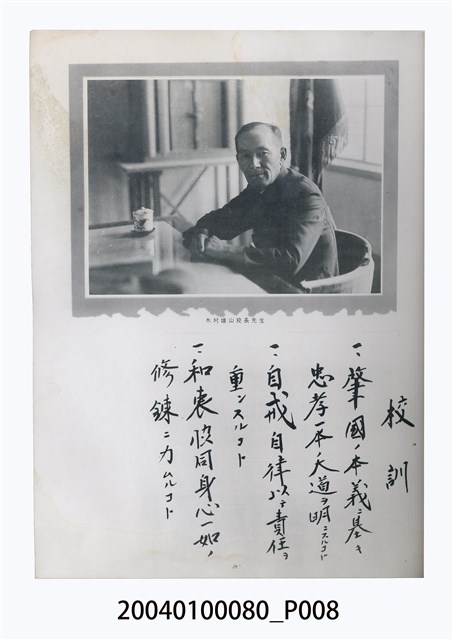 木村雄山校長先生
校訓
一、肇國ノ本義ニ基キ
忠孝一本ノ大道ヲ明ニスルコト
一、自戒自律以テ責任ヲ
重ンスルコト
一、和衷協同身心一如ノ
修錬ニ力ムルコト
20040100080_P008